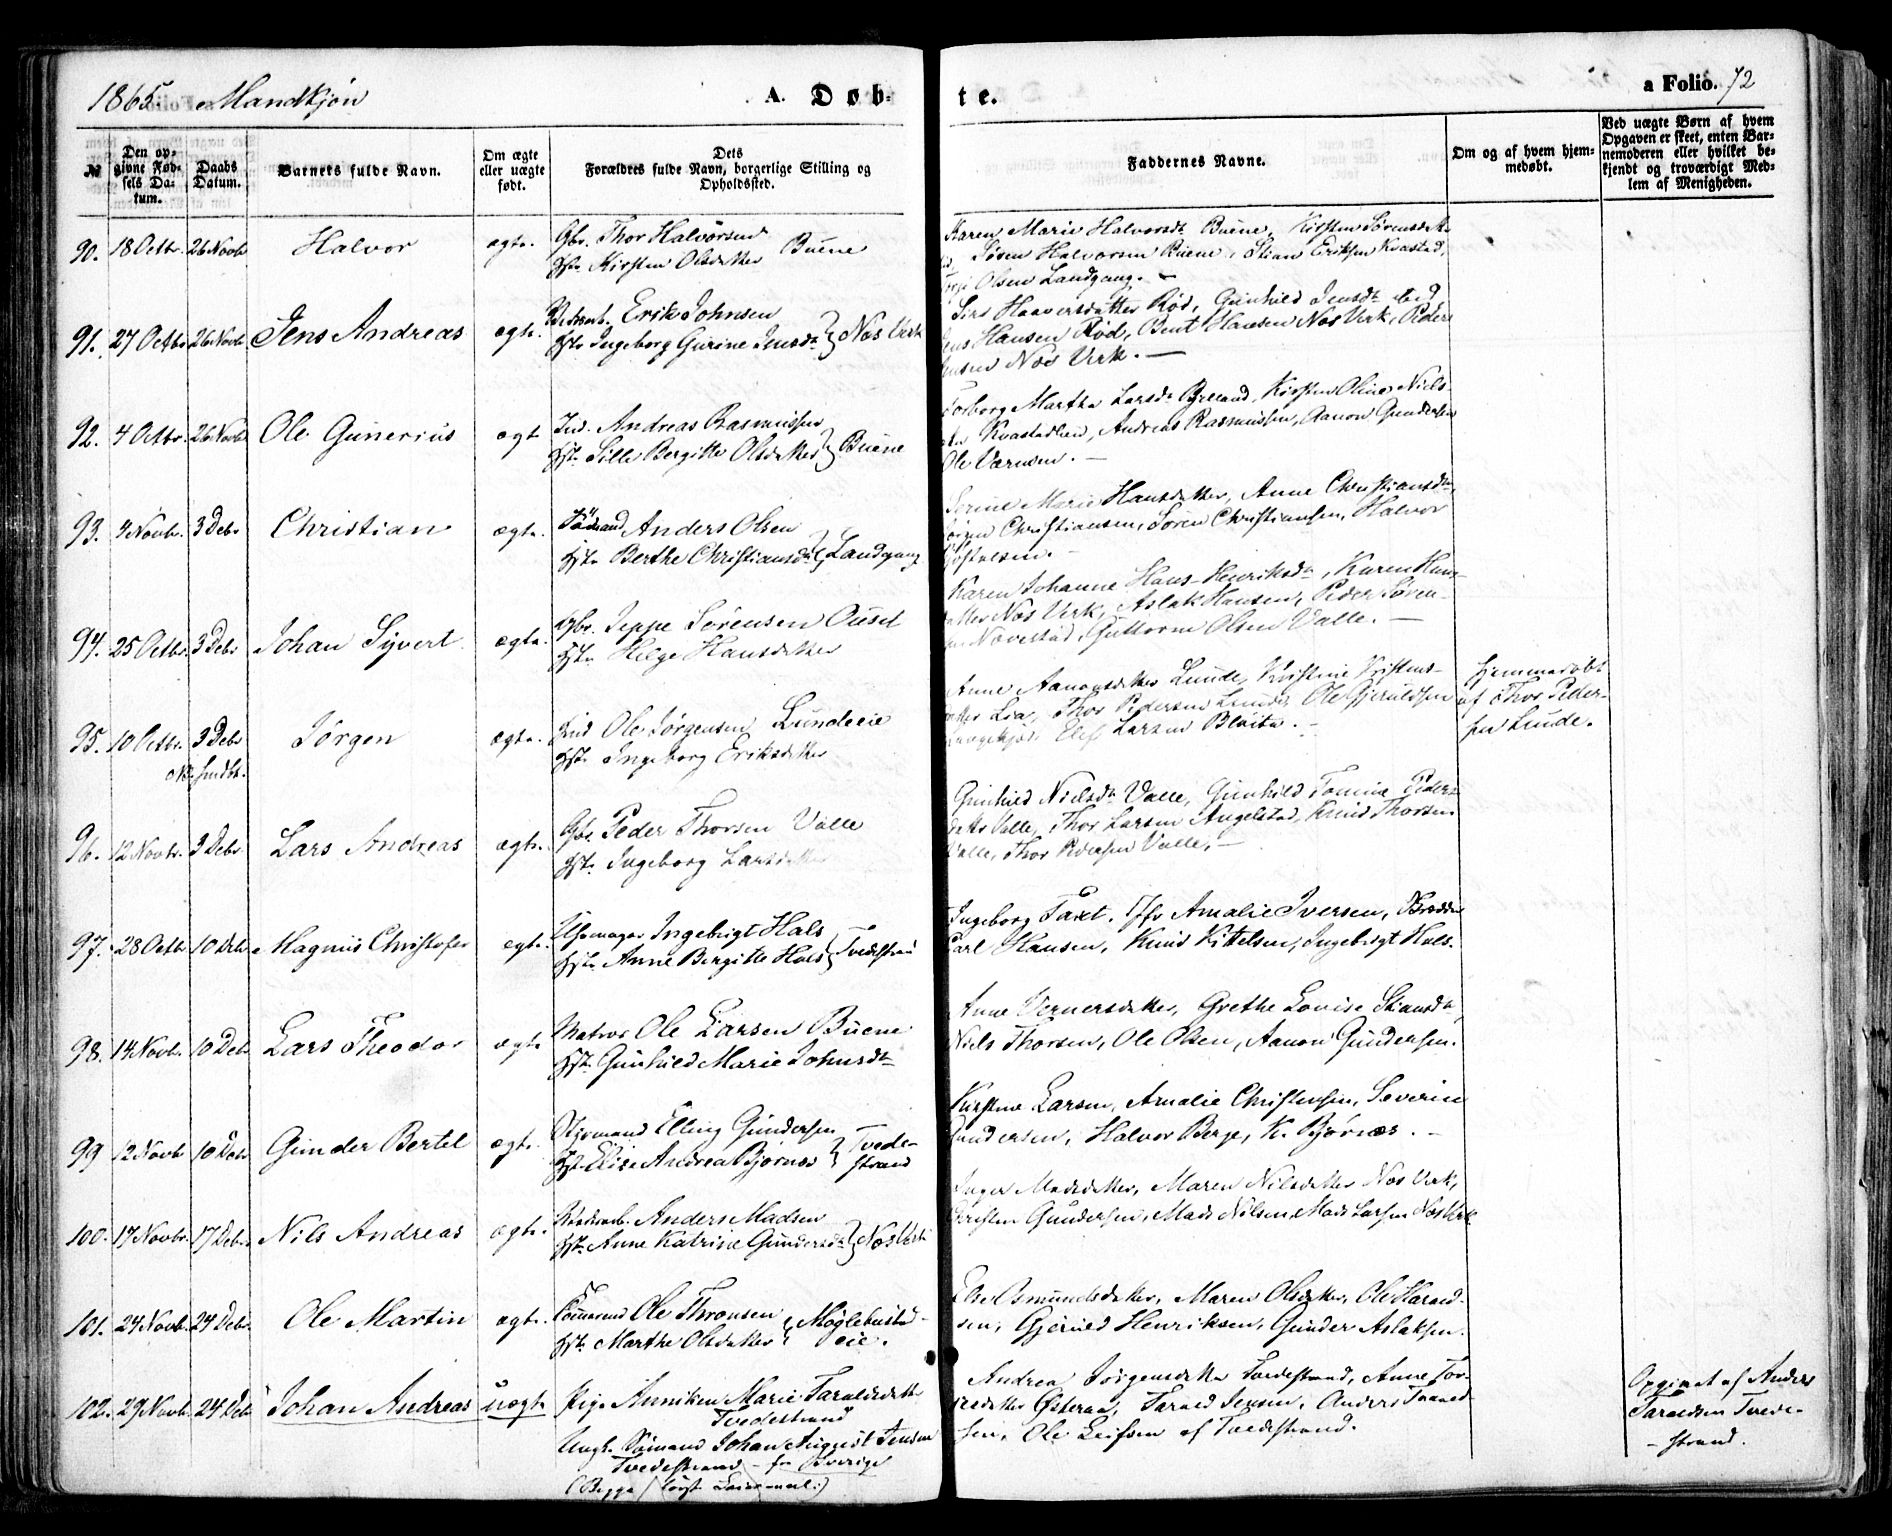 1865. Mandkjøn
A. Døb-
te.
a Folio. 72
№
Den op-
givne Fød-
sels Da-
tum.
Daabs
Datum.
Barnets fulde Navn.
Om ægte
eller uægte
født.
Dets
Forældres fulde Navn, borgerlige Stilling og
Opholdssted.
Faddernes Navne.
Om og af hvem hjem-
medøbt.
Ved uægte Børn af hvem
Opgaven er skeet, enten Bar-
nemoderen eller hvilket be-
kjendt og troværdigt Med-
lem af Menigheden.
90. 18 Octbr. 26 Novbr Halvor ægte. Gbr. Thor Halvorsen Buene
Hst. Kirsten Olsdatter
Karen Marie Halvorsdr Buene, Kirsten Sørensdatter
Søren Halvorsen Buene, Stian Eriksen Kvastad,
Olsen Landgang. —
91. 27 Octbr 26 Novbr Jens Andreas ægte. Erik Johnsen
Hst. Ingeborg Gurine Jensdr } Næs Verk
Siri Haaversdatter Rød, Gunhild Jensdr ibid,
Jens Hansen Rød, Bent Hansen Næs Verk, Peder
Jensen Næs Verk. —
92. 4 Octbr. 26 Novbr Ole Gunerius ægt Ind. Andreas Rasmussen
Hst. Sille Bergitte Olsdatter } Buene
Torborg Marthe Larsdr Kirsten Oline Niels-
Kvastadlien, Andreas Rasmussen, Aanon Gundersen
Ole Værnsen. —
93. 4 Novbr. 3 Debr Christian ægte. Sømand Anders Olsen
Hst. Berthe Christiansdr } Landgang
Serine Marie Hansdatter, Anne Christiansdr,
Jørgen Christiansen, Søren Christiansen, Halvor
94. 25 Octbr. 3 Debr Johan Syvert ægte. Gbr. Jeppe Sørensen Ousel
Hst. Helge Hansdatter
Karen Johanne Hans-Henriksdr, Karen Han-
datter Næs Verk, Aslak Hansen, Peder Søren-
Nævestad, Guttorm Olsen Valle. —
95. 10 Octbr. 3 Debr Jørgen ægte. Ind Ole Jørgensen Lundeeie
Hst. Ingeborg Eriksdatter
Anne Aanonsdatter Lunde, Kristine Kristens-
datter Lia, Thor Pedersen Lunde, Ole Gjeruldsen
Elef Larsen. —
Hjemmedøbt
af Thor Peder-
sen Lunde.
96. 12 Novbr. 3 Debr Lars Andreas ægte. Gbr. Peder Thorsen Valle
Hst. Ingeborg Larsdatter
Gunhild Nielsdr Valle, Gunhild Tomine Peders-
datter Valle, Thor Larsen Angelstad, Knud Thorsen
Valle, Thor Pedersen Valle. —
97. 28 Octbr 10 Debr Magnus Christofer ægte. Uhrmager Ingebrigt Hals
Hst. Anne Bergitte Hals } Tvedestrand
Ingeborg Taxt, Jfr Amalie Iversen,
Carl Hansen, Knud Kittelsen, Ingebrigt Hals.
98. 14 Novbr. 10 Debr Lars Theodor ægte Matros Ole Larsen Buene
Hst. Gunhild Marie Johnsdr
Anne Vernersdatter, Grethe Lovise Stiansdr,
Niels Thorsen, Ole Olsen, Aanon Gundersen.
99 12 Novbr 10 Debr Gunder Bertel ægte. Styrmand Elling Gundersen
Hst. Elise Andrea Bjørnæs } Tvede-
strand
Kirstine Larsen, Amalie Christensen, Severin
Gundersen, Halvor Berge, K. Bjørnæs. —
100. 17 Novbr. 17 Debr. Nils Andreas ægte. Anders Madsen
Hst. Anne Katrine Gundersdr } Næs Verk
Inger Madsdatter, Maren Nilsdatter Næs Verk,
Christen Gundersen, Mads Nilsen, Mads Larsen Næs Verk
101. 24 Novbr. 24 Debr. Ole Martin ægte. Ole Thronsen } Møglebustad-
Hst. Marthe Olsdatter eie.
Else Osmundsdatter, Maren Olsdatter, Ole Harald-
sen, Gjeruld Henriksen, Gunder Aslaksen.
102. 29 Novbr. 24 Debr Johan Andreas uægte Pige Anniken Marie Taraldsdatter
Tvedestrand
Ungk. Sømand Johan August Jensen
Tvedestrand – fra Sverige
(Begges første Leiermaal:)
Andrea Jørgensdatter Tvedestrand, Anne Tor-
datter Østeraa, Tarald Jensen, Anders Tarald-
sen, Ole Leifsen af Tvedestrand.
Opgivet af Anders
Taraldsen Tvede-
strand.